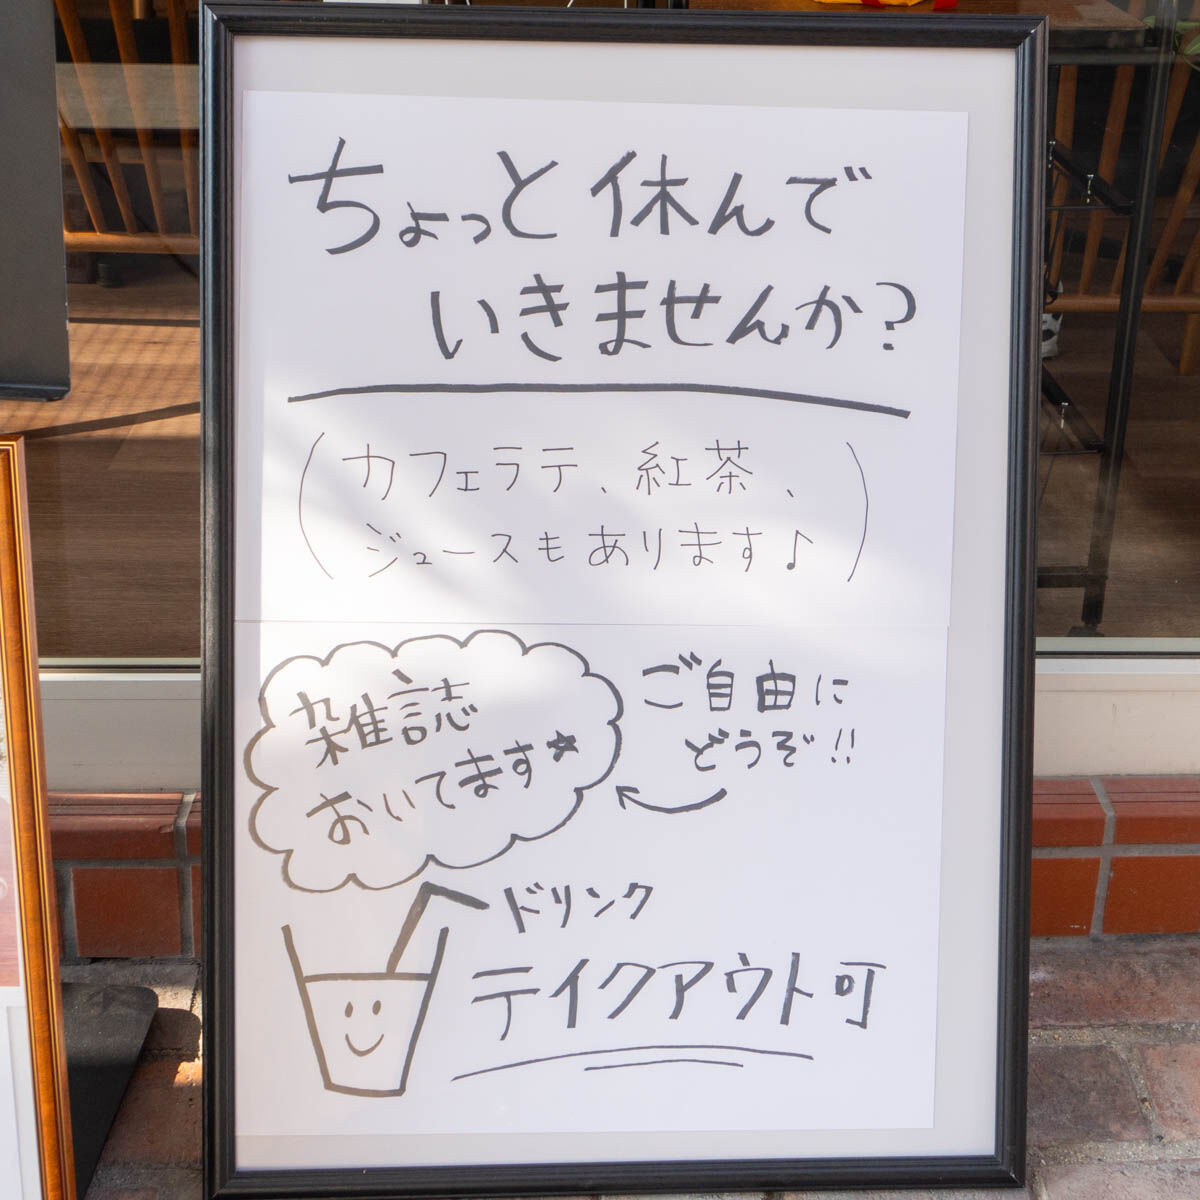 ちょっと休んで
いきませんか?
(カフェラテ、紅茶、
ジュースもあります♪)
雑誌
おいてます☆
ご自由に
どうぞ!!
ドリンク
テイクアウト可